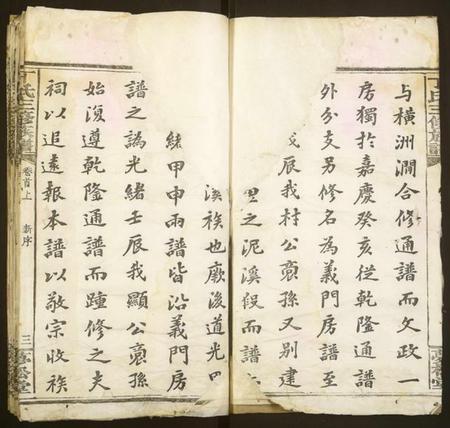 與橫洲澗合修通譜而文政一
房獨於嘉慶癸亥從乾隆通譜
外分支另修名為義門房譜至
戊辰我村公裔孫又別建
之泥溪假而譜
溪族也厥後道光
緒甲申兩譜皆沿義門房
譜之譌光緒壬辰我顯公裔孫
始復遵乾隆通譜而踵修之夫
祠以追遠報本譜以敬宗收族
丁氏三修族譜
卷首上
新序
三